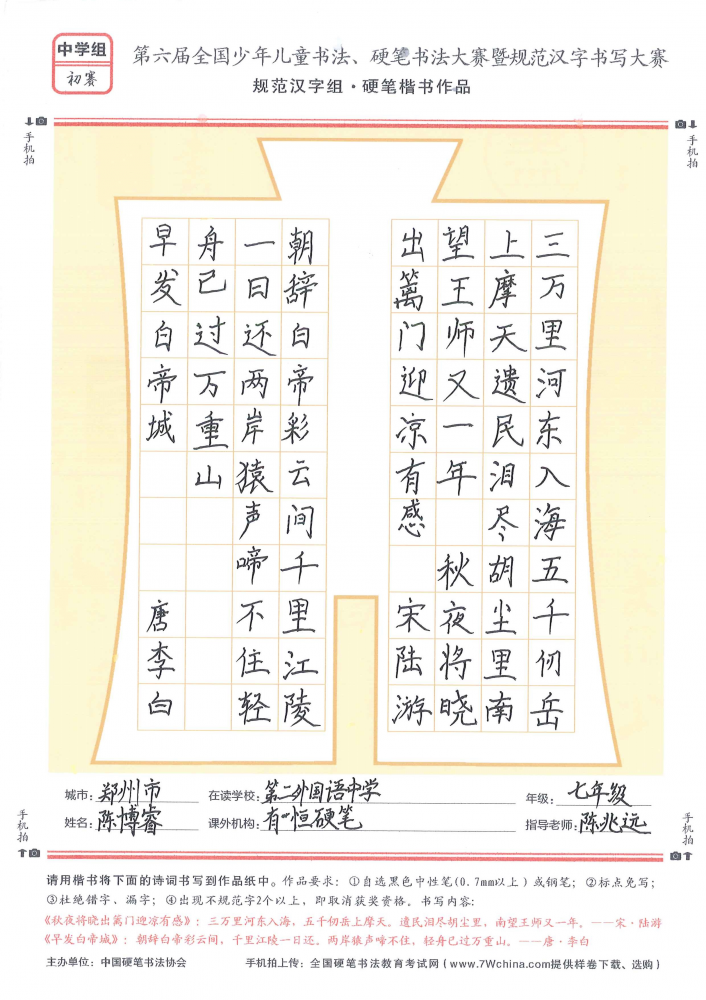 中学组
初赛
第六届全国少年儿童书法、硬笔书法大赛暨规范汉字书写大赛
规范汉字组·硬笔楷书作品
手机拍
手机拍
三万里河东入海五千仞岳
上摩天遗民泪尽胡尘里南
望王师又一年 秋夜将晓
出篱门迎凉有感 宋陆游
朝辞白帝彩云间千里江陵
一日还两岸猿声啼不住轻
舟已过万重山
早发白帝城 唐李白
城市：郑州市 在读学校：第二外国语中学 年级：七年级
姓名：陈博睿 课外机构：有恒硬笔 指导老师：陈兆远
手机拍
手机拍
请用楷书将下面的诗词书写到作品纸中。作品要求：①自选黑色中性笔(0.7mm以上)或钢笔；②标点免写；
③杜绝错字、漏字；④出现不规范字2个以上，即取消获奖资格。书写内容：
《秋夜将晓出篱门迎凉有感》：三万里河东入海，五千仞岳上摩天。遗民泪尽胡尘里，南望王师又一年。——宋·陆游
《早发白帝城》：朝辞白帝彩云间，千里江陵一日还。两岸猿声啼不住，轻舟已过万重山。——唐·李白
主办单位：中国硬笔书法协会 手机拍上传：全国硬笔书法教育考试网（www.7Wchina.com提供样卷下载、选购）